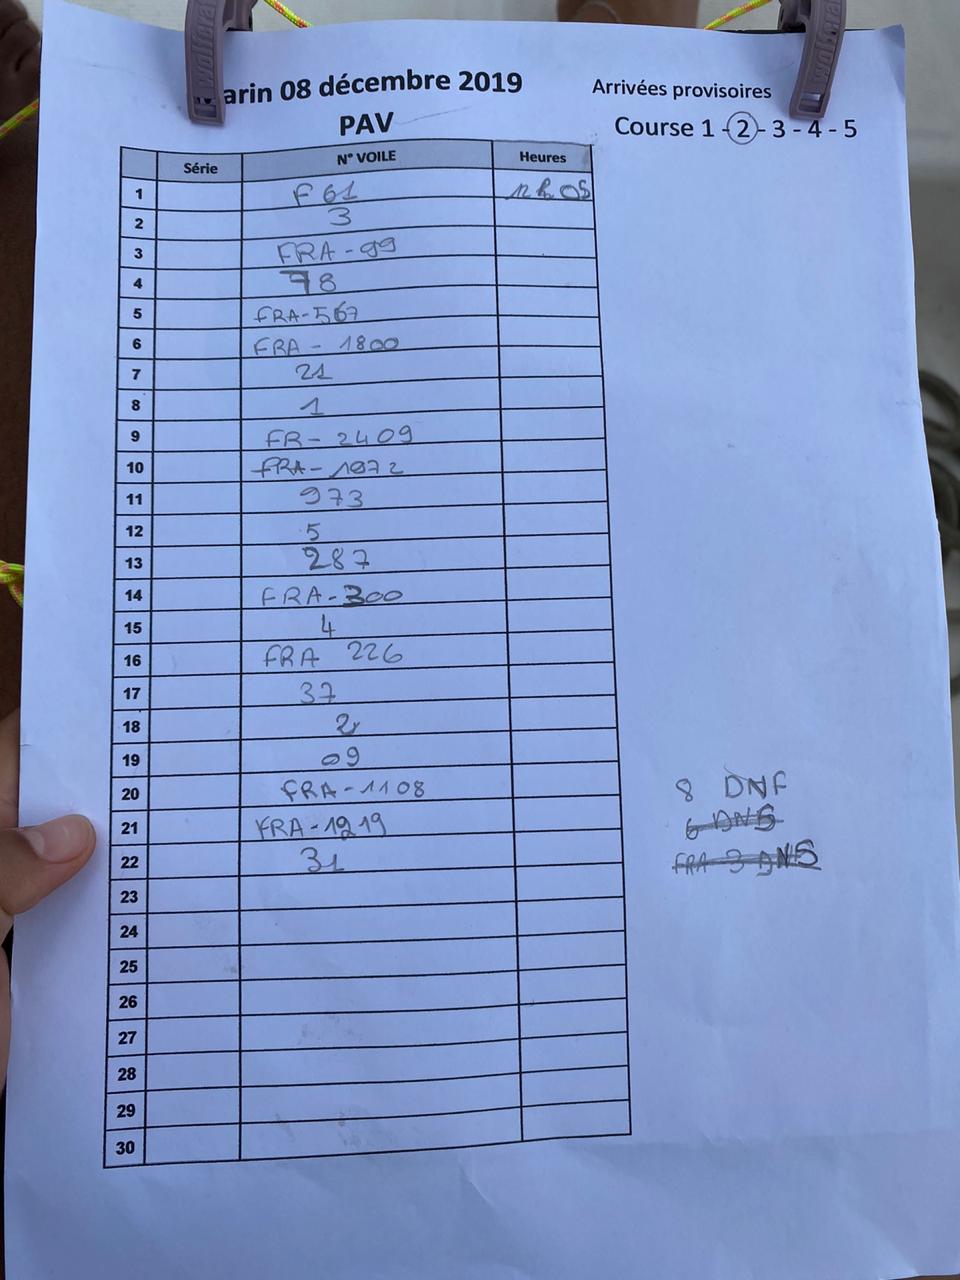 arin 08 décembre 2019
Arrivées provisoires
PAV
Course 1 - 2 - 3 - 4 - 5
Série N° VOILE Heures
1 F 61 12h05
2 3
3 FRA-99
4 78
5 FRA-567
6 FRA - 1800
7 21
8 1
9 FR - 2409
10 FRA-1072
11 973
12 5
13 287
14 FRA-300
15 4
16 FRA 226
17 37
18 2
19 09
20 FRA-1108
21 FRA-1219
22 31
23
24
25
26
27
28
29
30
8 DNF
6 DNS
FRA 3 DNS